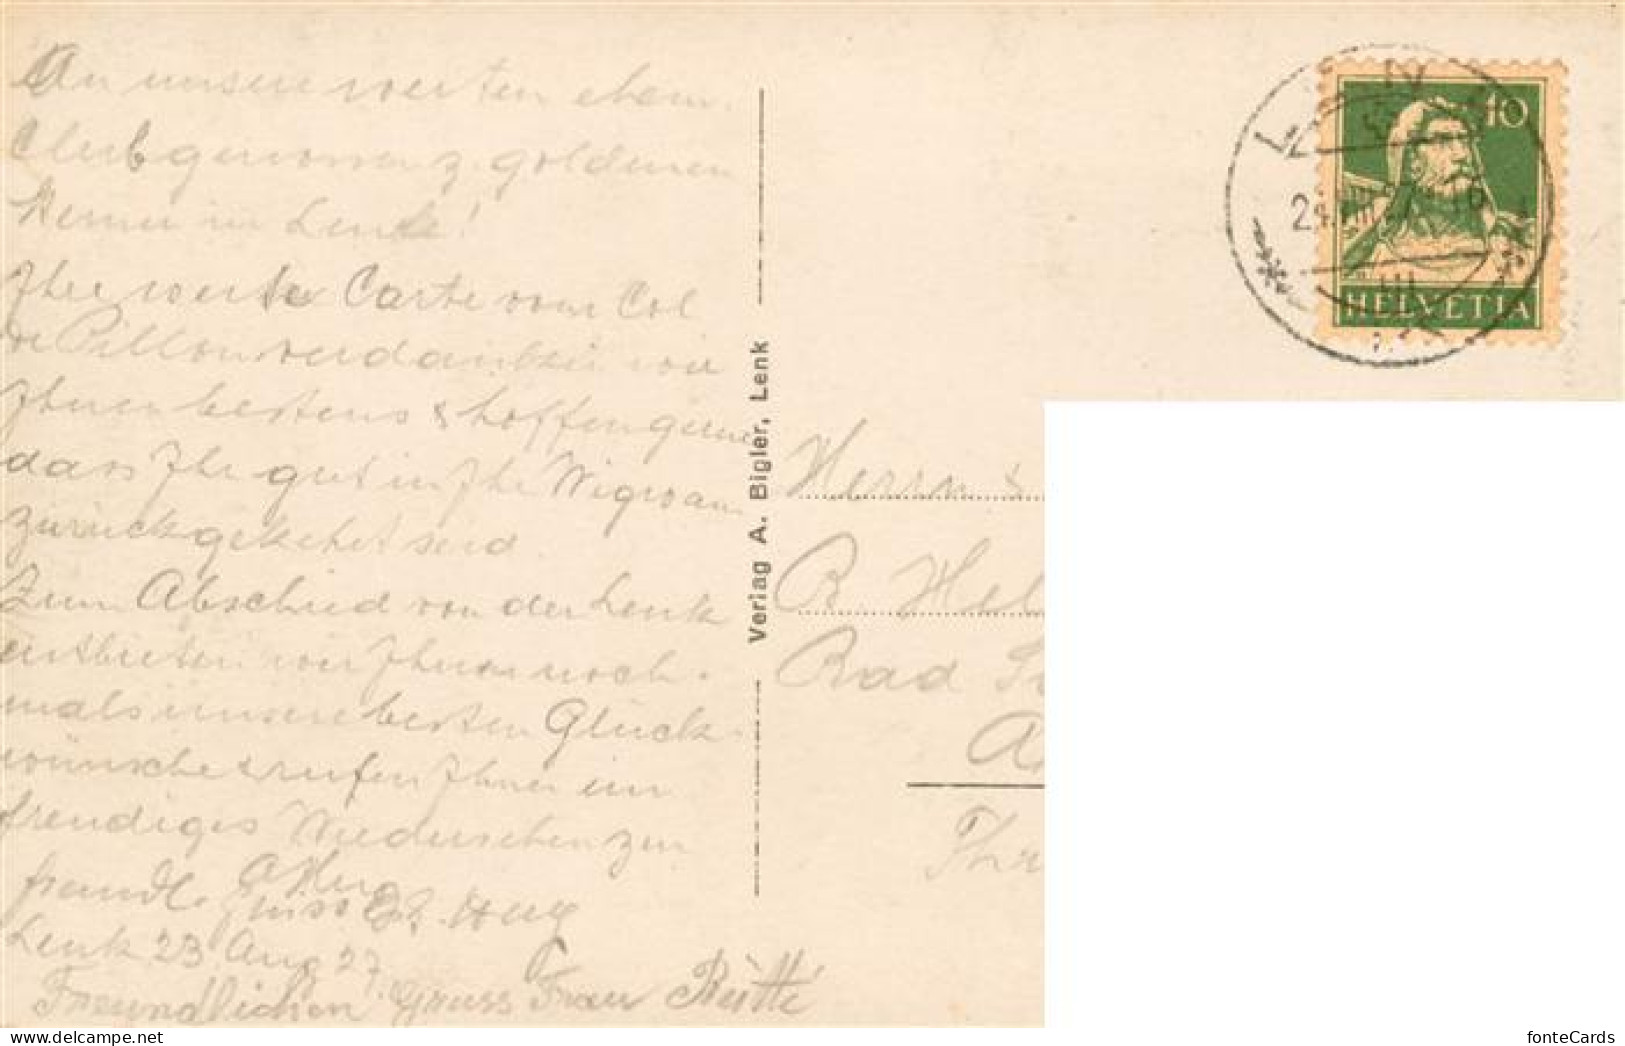 An unsere werten ehem.
Clubgenossen z. goldenen
Sternen in Lenk!
Ihre werte Carte vom Col
de Pillon verdanken wir
Ihnen bestens & hoffen gerne
dass Ihr gut in Ihr Wigwam
zurückgekehrt seid.
Zum Abschied von der Lenk
entbieten wir Ihnen noch-
mals unsere besten Glück-
wünsche & rufen Ihnen ein
freudiges Wiedersehen zu
freundl. Gruss
A Hug
Hug
Lenk 23. Aug 27.
Freundlichen Gruss Frau Bütti
Verlag A. Bigler, Lenk
10
HELVETIA
III
Herrn &
R. Hel
Bad
Thr
fonteCards